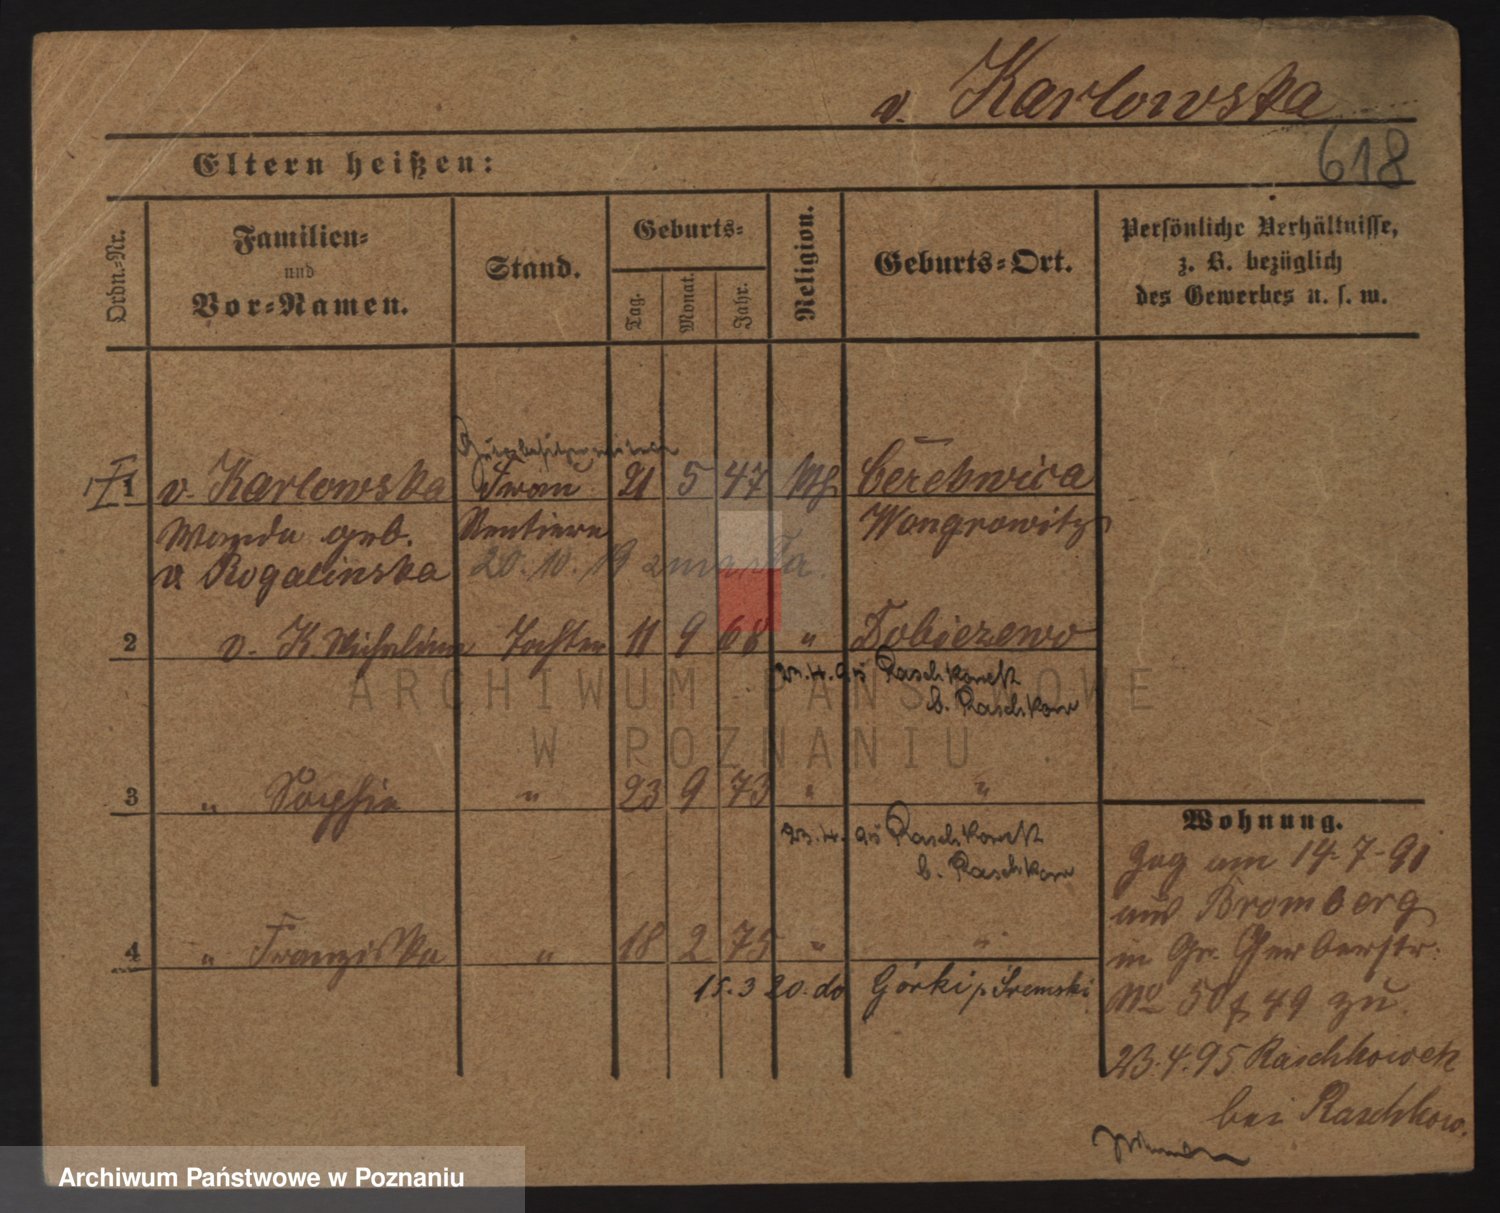 v. Karlowska
618
Eltern heißen:
Ordn.-Nr.
Familien-
und
Vor-Namen.
Stand.
Geburts-
Tag.
Monat.
Jahr.
Religion.
Geburts-Ort.
Persönliche Verhältnisse,
z. B. bezüglich
des Gewerbes u. s. w.
1 v. Karlowska Frau 21 5 47 kth Czeschwica
Wanda geb. Rentiere Wongrowitz
v Rogalinska 20.10.19 zmarła.
2 v. K. Michalina Tochter 11 9 68 " Dobiezewo
23.4.95 Raschkoweck
b. Raschkow
3 " Sophie " 23 9 73 " "
23.4.95 Raschkoweck
b. Raschkow
4 " Franziska " 18 2 75 " "
15.3 20. do Górki p. Śremski
Wohnung.
Zog am 14-7-91
aus Bromberg
in Gr. Gerberstr.
No 50 49 zu
23.4.95 Raschkoweck
bei Raschkow.
ARCHIWUM PAŃSTWOWE
W POZNANIU
Archiwum Państwowe w Poznaniu